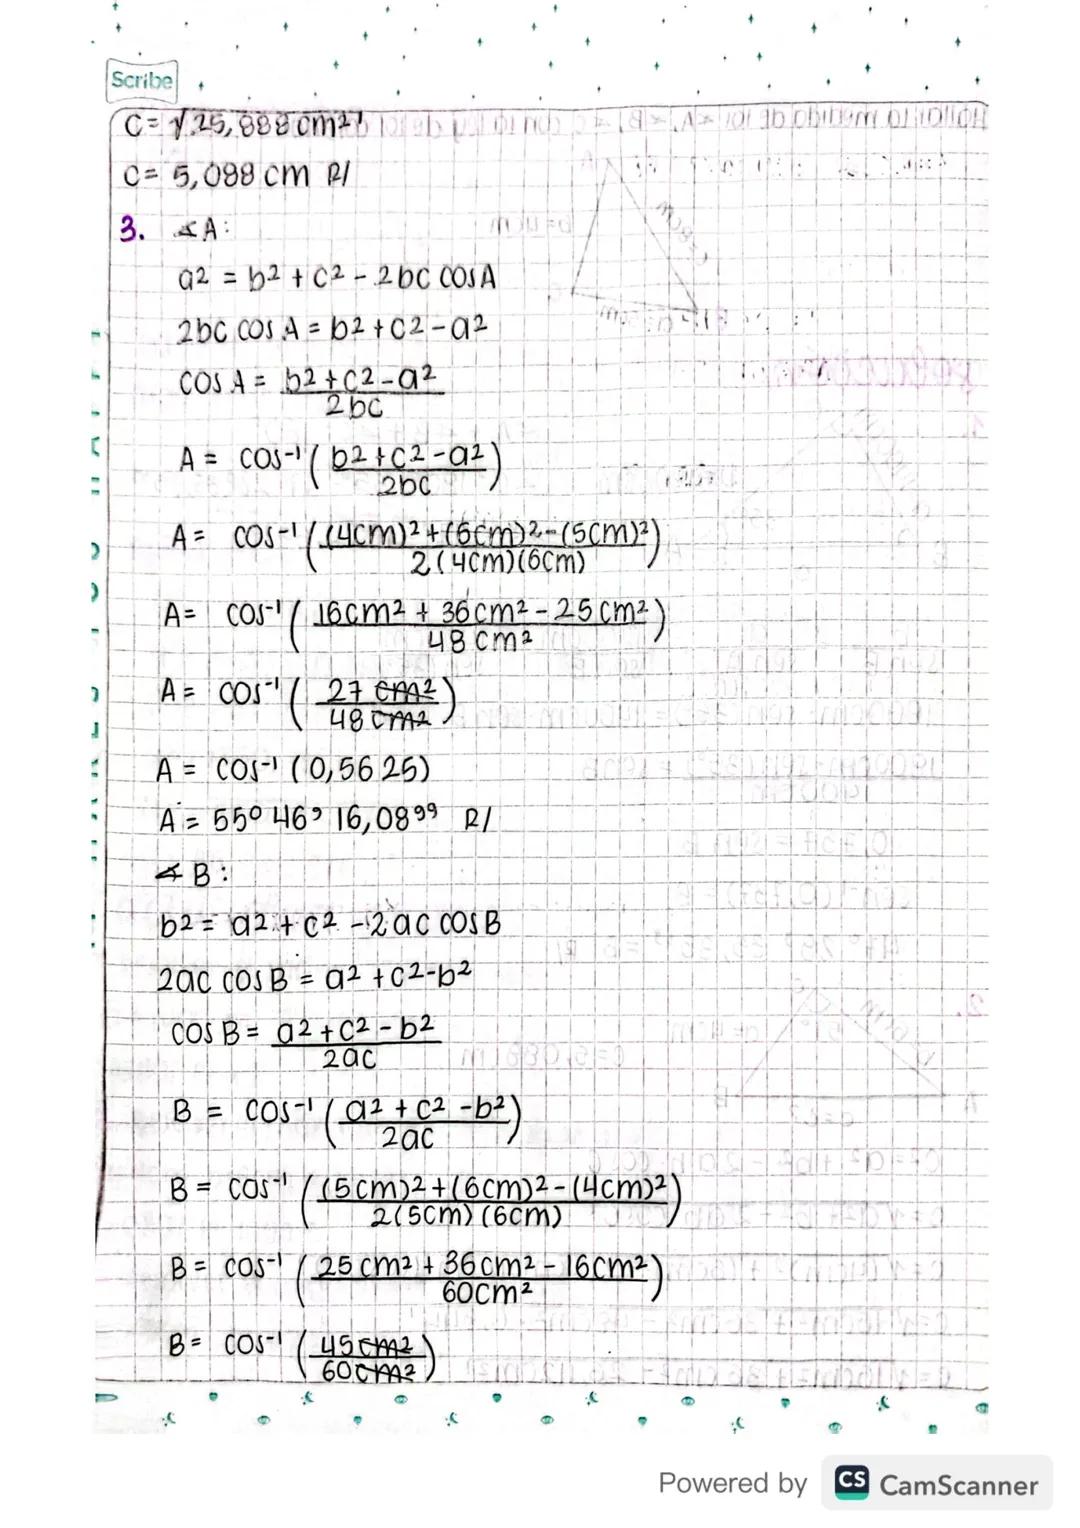 Scribe
C = √25,888 cm²
C = 5,088 cm R/
3. ∡A:
a² = b² + c² - 2bc cos A
2bc cos A = b² + c² - a²
cos A = b² + c² - a²
2bc
A = cos⁻¹ ( b² + c² - a² )
2bc
A = cos⁻¹ ( (4cm)² + (6cm)² - (5cm)² )
2(4cm)(6cm)
A = cos⁻¹ ( 16cm² + 36cm² - 25cm² )
48 cm²
A = cos⁻¹ ( 27 cm² )
48 cm²
A = cos⁻¹ (0,5625)
A = 55° 46' 16,08'' R/
∡B:
b² = a² + c² - 2ac cos B
2ac cos B = a² + c² - b²
cos B = a² + c² - b²
2ac
B = cos⁻¹ ( a² + c² - b² )
2ac
B = cos⁻¹ ( (5cm)² + (6cm)² - (4cm)² )
2(5cm)(6cm)
B = cos⁻¹ ( 25cm² + 36cm² - 16cm² )
60cm²
B = cos⁻¹ ( 45cm² )
60cm²
Powered by CS CamScanner